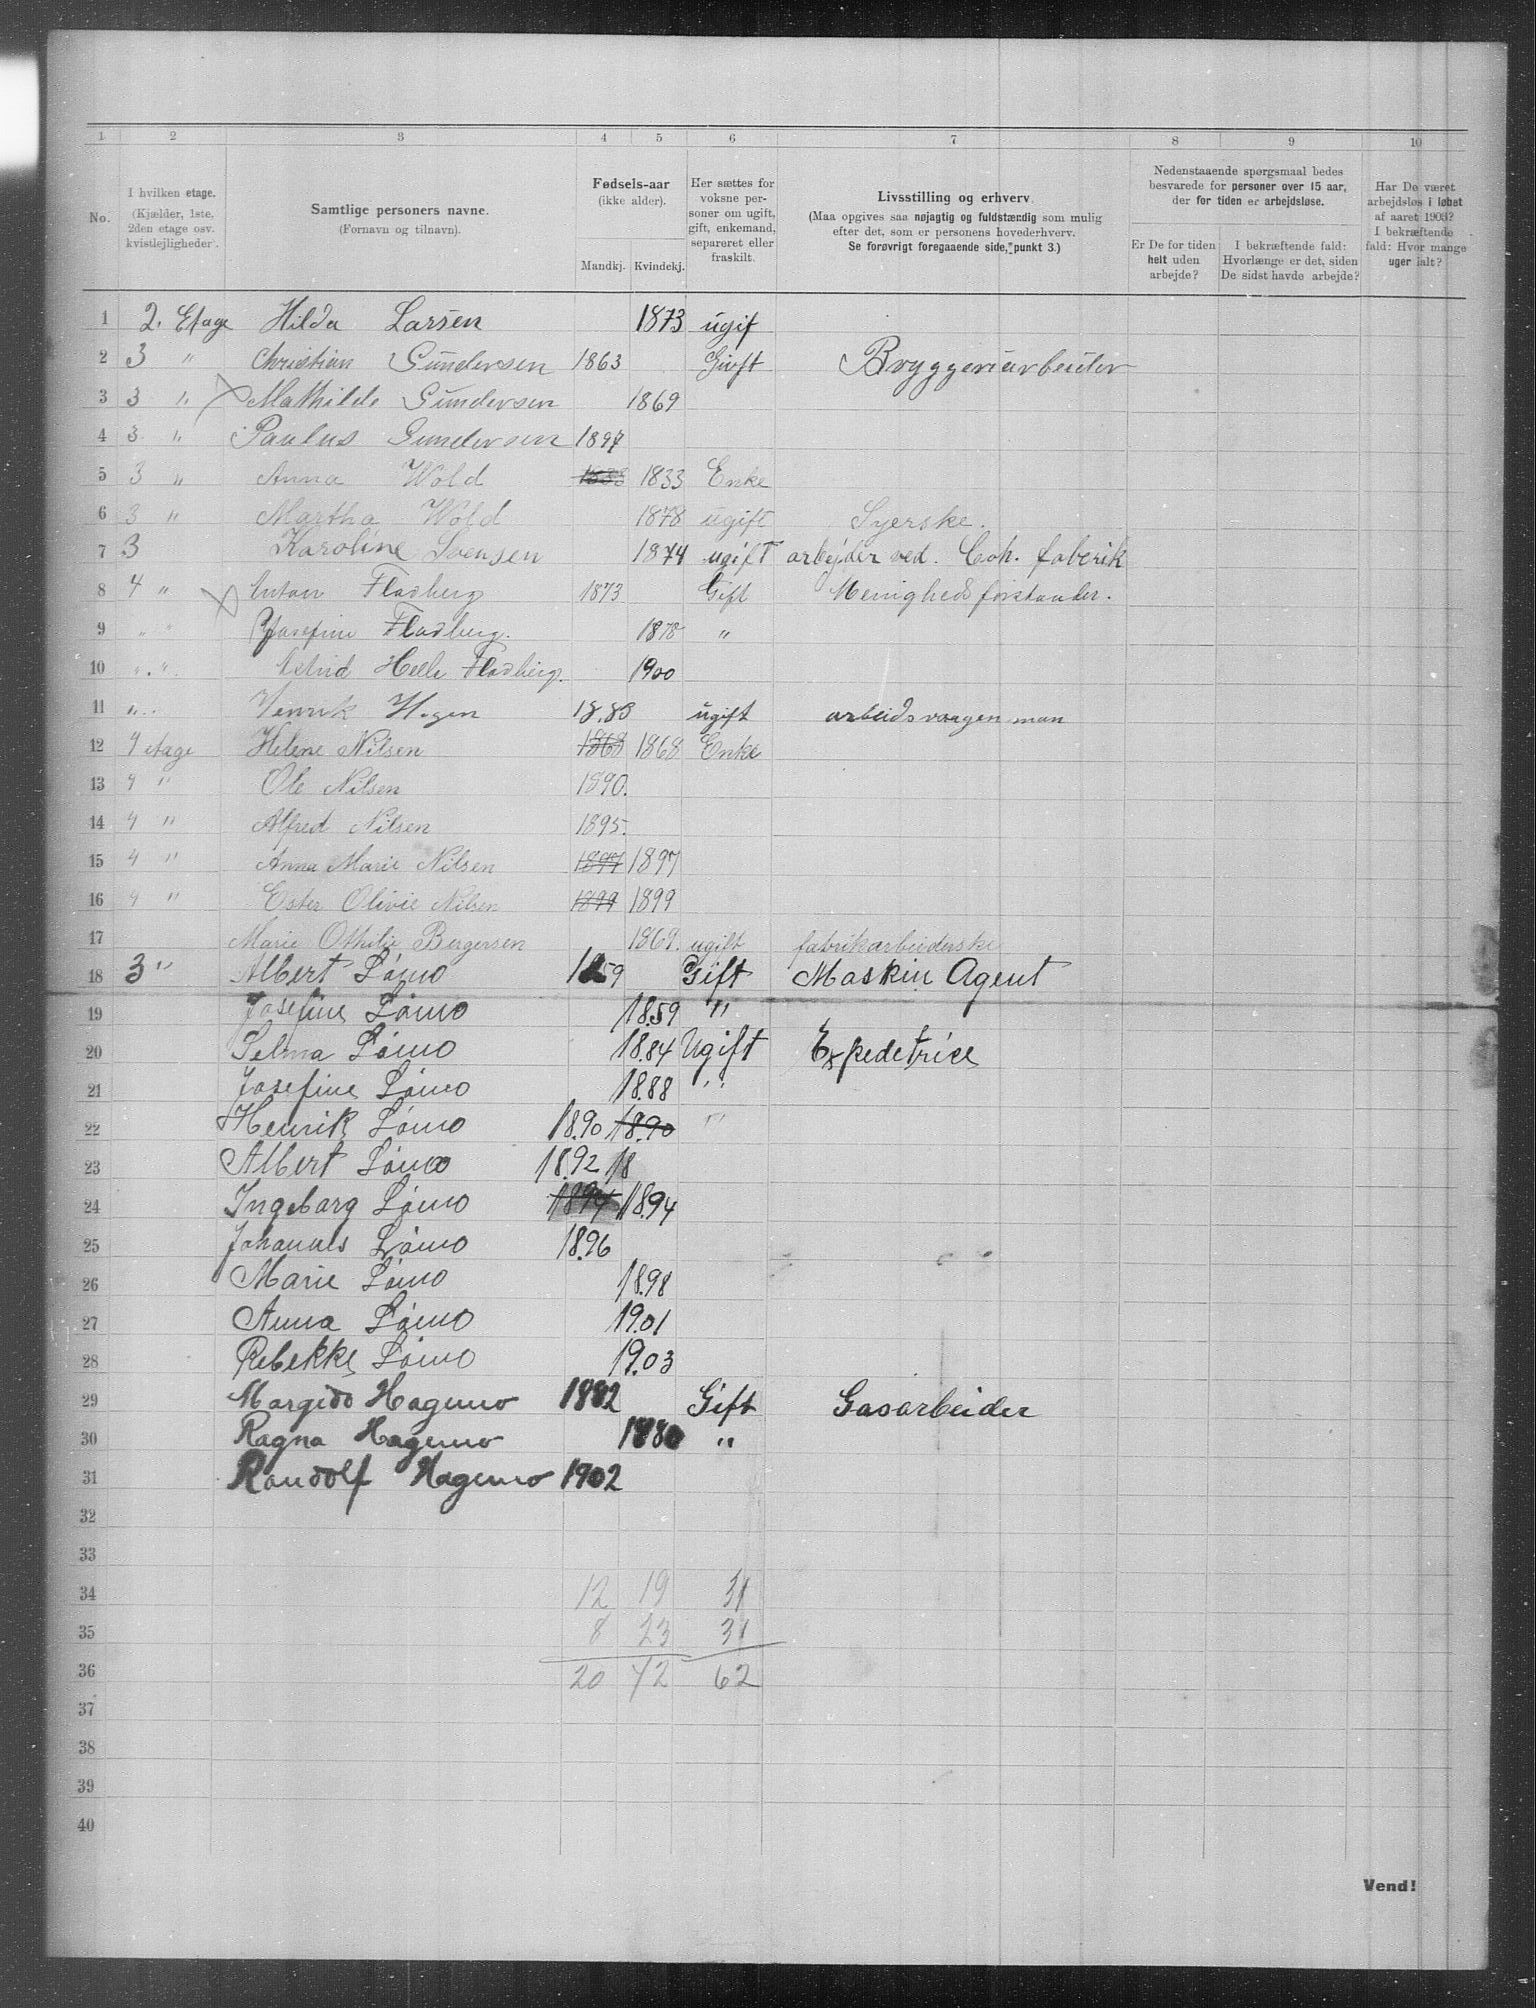 1 2 3 4 5 6 7 8 9 10
No.
I hvilken etage.
(Kjælder, 1ste,
2den etage osv.
kvistlejligheder).
Samtlige personers navne.
(Fornavn og tilnavn).
Fødsels-aar
(ikke alder).
Mandkj. Kvindekj.
Her sættes for
voksne per-
soner om ugift,
gift, enkemand,
separeret eller
fraskilt.
Livsstilling og erhverv.
(Maa opgives saa nøjagtig og fuldstændig som mulig
efter det, som er personens hovederhverv.
Se forøvrigt foregaaende side, punkt 3.)
Nedenstaaende spørgsmaal bedes
besvarede for personer over 15 aar,
der for tiden er arbejdsløse.
Er De for tiden
helt uden
arbejde?
I bekræftende fald:
Hvorlænge er det, siden
De sidst havde arbejde?
Har De været
arbejdsløs i løbet
af aaret 1903?
I bekræftende
fald: Hvor mange
uger ialt?
1 2. Etage Hilda Larsen 1873 ugif
2 3 " Christian Gundersen 1863 Givft Bryggeriarbeider
3 3 " Mathilde Gundersen 1869
4 3 " Paulus Gundersen 1897
5 3 " Anna Wold 1833 1833 Enke
6 3 " Martha Wold 1878 ugift Syerske.
7 3 Karoline Svensen 1874 ugift arbejder ved. Coh. faberik
8 4 " Anton Fladberg 1873 Gift Menighedsforstander.
9 " " Josefine Fladberg. 1878 "
10 " . " . Astrid Helle Fladberg. 1900
11 " . . Henrik Hagen 18.83 ugift arbeidsvaagen man
12 4 etage Helene Nilsen 1868 1868 Enke
13 4 " Ole Nilsen 1890.
14 4 " Alfred Nilsen 1895.
15 4 " Anna Marie Nilsen 1897 1897
16 4 " Ester Olivie Nilsen 1899 1899
17 Marie Othilie Bergersen 1869. ugift fabrikarbeiderske
18 3 " Albert Lômo 1859 Gift Maskin Agent
19 Josefine Lômo 18.59 "
20 Selma Lômo 18.84 Ugift Expedetrice
21 Josefine Lômo 18.88 "
22 Henrik Lômo 18.90 18.90 "
23 Albert Lômo 18.92 18
24 Ingeborg Lômo 1894 18.94
25 Johannes Lômo 18.96
26 Marie Lômo 18.98
27 Anna Lômo 19.01
28 Rebekke Lômo 19.03
29 Margido Hagemo 1882 Gift Gasarbeider
30 Ragna Hagemo 1880 "
31 Randolf Hagemo 1902
32
33
34 12 19 31
35 8 23 31
36 20 42 62
37
38
39
40
Vend!